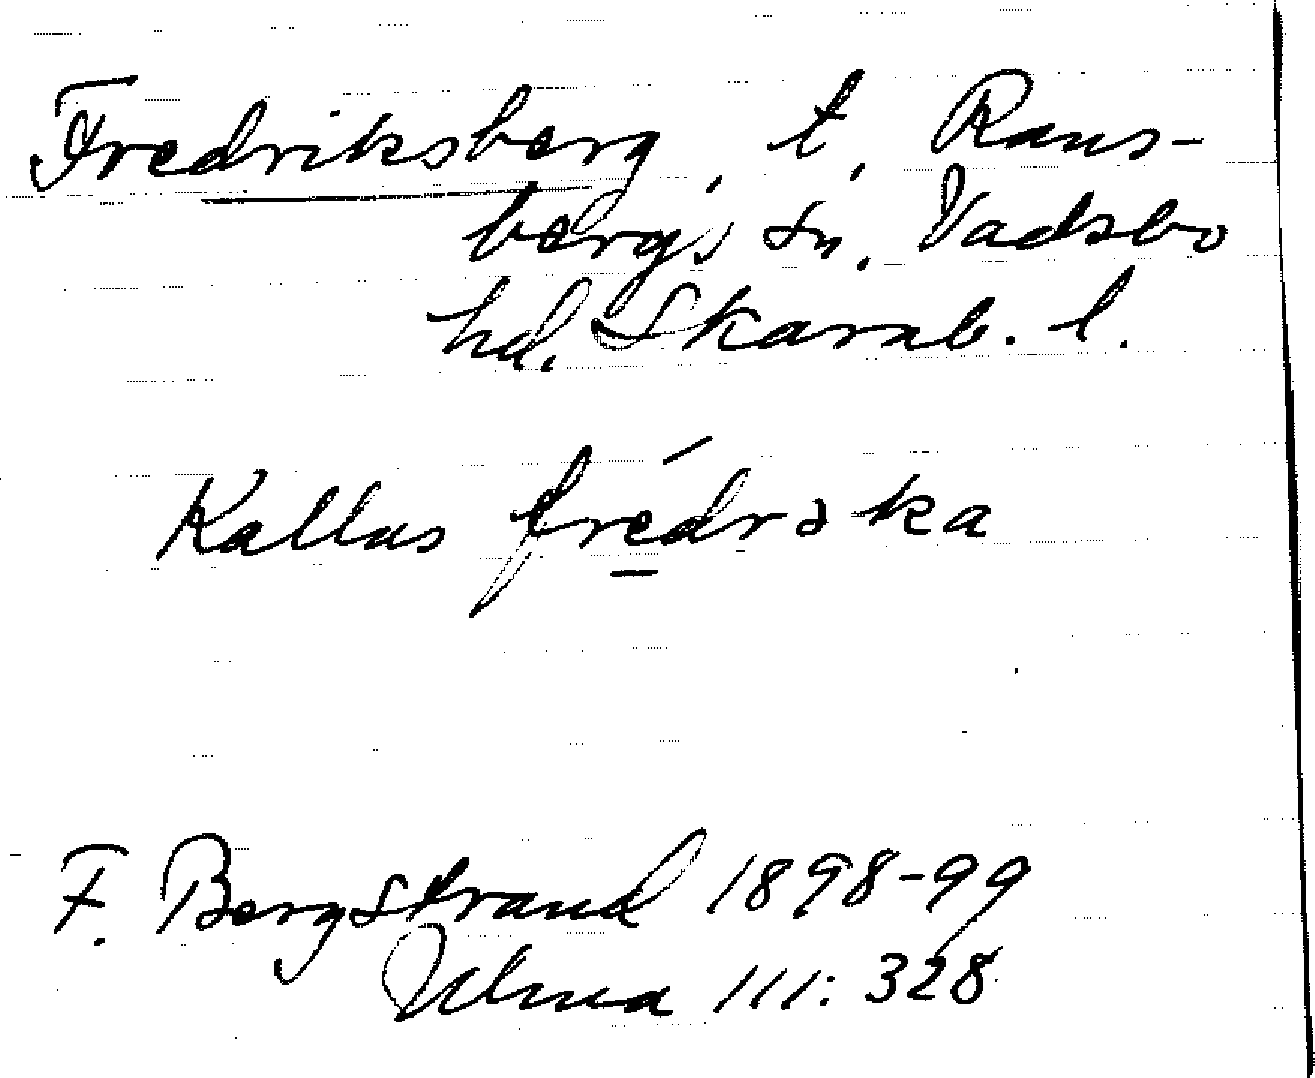 Fredriksberg, t. Rans-
bergs sn. Vadsbo
hd. Skarab. l.
Kallas frédrəka
F. Bergstrand 1898-99
Ulma 111: 328